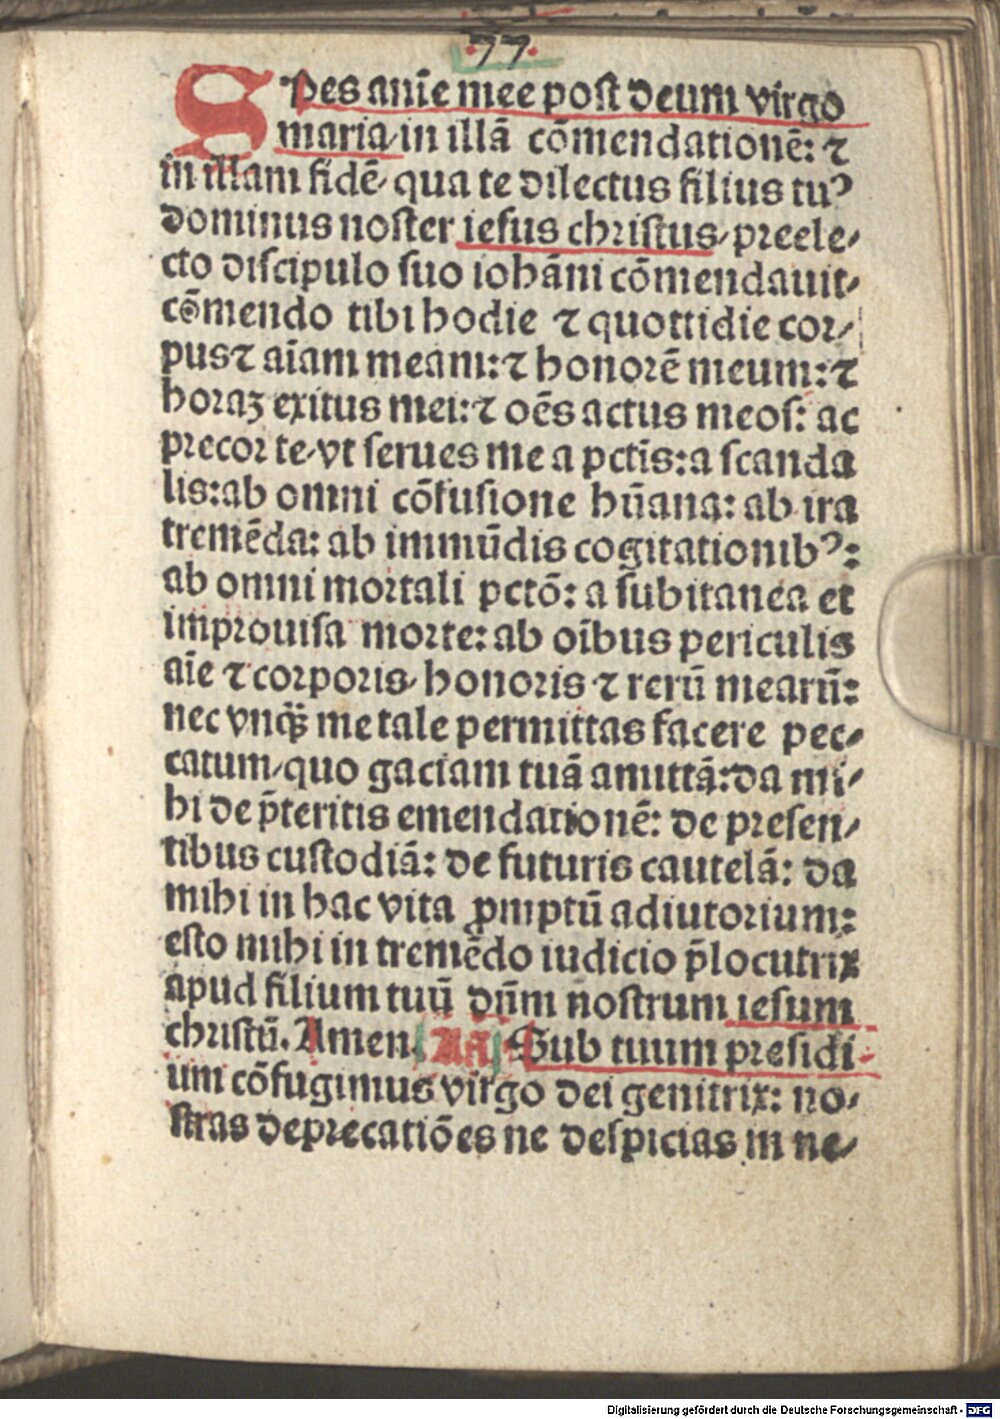 ·77·
SPes anīe mee post deum virgo
maria/in illā cōmendationē: ⁊
in illam fidē/ qua te dilectus filius tuꝰ
dominus noster iesus christus/preele/
cto discipulo suo iohāni cōmendauit/
cōmendo tibi hodie ⁊ quottidie cor/
pus⁊ aīam meam:⁊ honorē meum:⁊
horaꝫ exitus mei:⁊ oēs actus meos: ac
precor te/vt serues me a pctīs:a scanda
lis:ab omni cōfusione hūana: ab ira
tremēda: ab immūdis cogitationibꝰ:
ab omni mortali pctō: a subitanea et
improuisa morte: ab oībus periculis
aīe ⁊ corporis/ honoris ⁊ rerū mearū:
nec vnq̄ꝫ me tale permittas facere pec/
catum/quo gaciam tuā amittā:da mi/
hi de p̄teritis emendationē: de presen/
tibus custodiā: de futuris cautelā: da
mihi in hac vita ꝓmptū adiutorium:
esto mihi in tremēdo iudicio p̄locutrix
apud filium tuū dn̄m nostrum iesum
christū. Amen. Añ Sub tuum presidi
um cōfugimus virgo dei genitrix: no/
stras deprecatiōes ne despicias in ne/
Digitalisierung gefördert durch die Deutsche Forschungsgemeinschaft - DFG